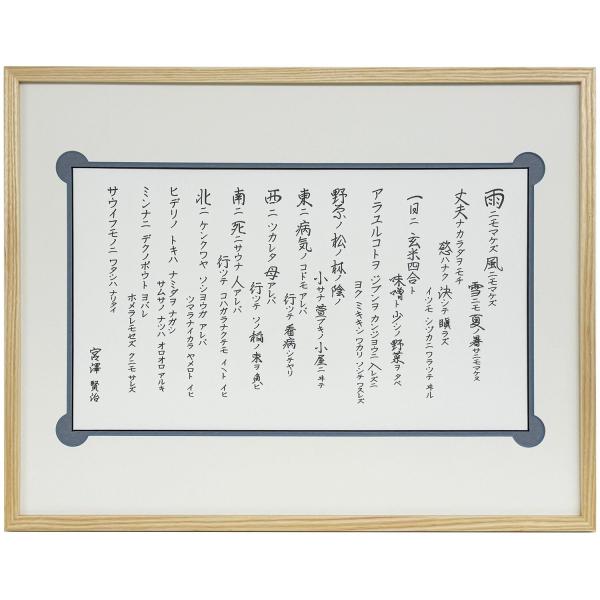 雨ニモマケズ 風ニモマケズ
雪ニモ夏ノ暑サニモマケヌ
丈夫ナカラダヲモチ
慾ハナク 決シテ瞋ラズ
イツモシヅカニワラッテヰル
一日ニ玄米四合ト
味噌ト少シノ野菜ヲタベ
アラユルコトヲジブンヲカンジョウニ入レズニ
ヨクミキキシワカリソシテワスレズ
野原ノ松ノ林ノ陰ノ
小サナ萱ブキノ小屋ニヰテ
東ニ病気ノコドモアレバ
行ッテ看病シテヤリ
西ニツカレタ母アレバ
行ッテソノ稲ノ束ヲ負ヒ
南ニ死ニサウナ人アレバ
行ッテコハガラナクテモイヽトイヒ
北ニケンクワヤソショウガアレバ
ツマラナイカラヤメロトイヒ
ヒデリノトキハナミダヲナガシ
サムサノナツハオロオロアルキ
ミンナニデクノボウトヨバレ
ホメラレモセズ クニモサレズ
サウイフモノニワタシハナリタイ
宮澤賢治